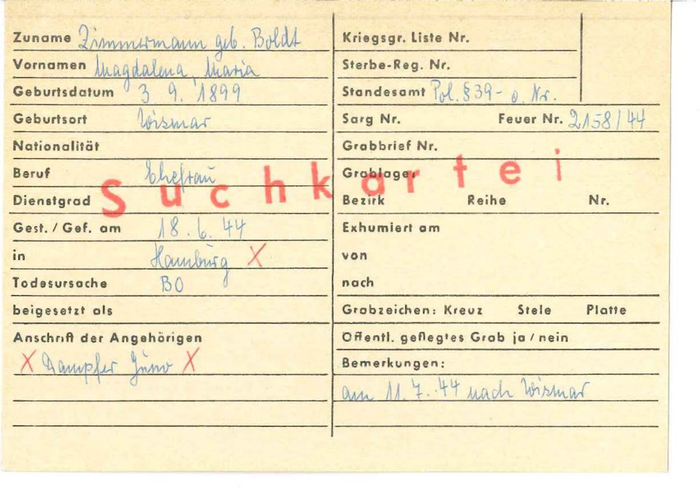 Zuname Zimmermann geb. Boldt
Vornamen Magdalena, Maria
Geburtsdatum 3 9. 1899
Geburtsort Wismar
Nationalität
Beruf Ehefrau
Dienstgrad
Gest. / Gef. am 18. 6. 44
in Hamburg X
Todesursache BO
beigesetzt als
Anschrift der Angehörigen
X Dampfer Juno X
Suchkartei
Kriegsgr. Liste Nr.
Sterbe-Reg. Nr.
Standesamt Pol. § 39 - o. Nr.
Sarg Nr. Feuer Nr. 2158/44
Grabbrief Nr.
Grablage
Bezirk Reihe Nr.
Exhumiert am
von
nach
Grabzeichen: Kreuz Stele Platte
Öffentl. geflegtes Grab ja / nein
Bemerkungen:
am 11. 7. 44 nach Wismar